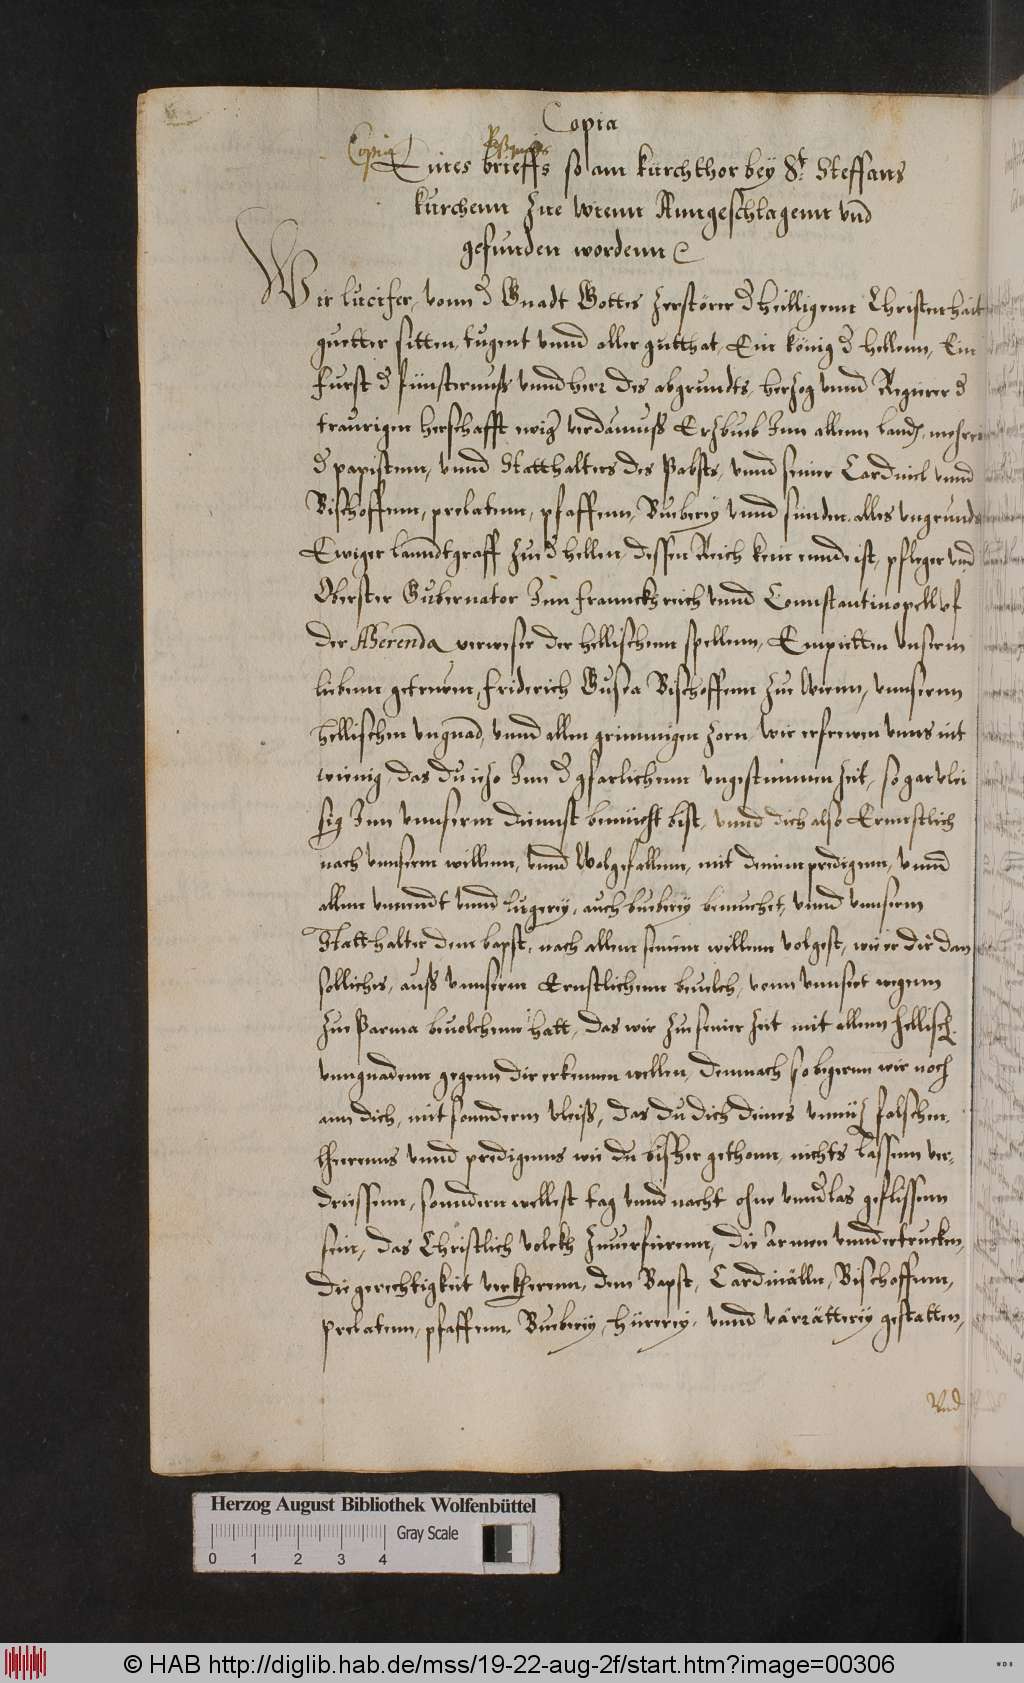 Copia
Copia Eines brieffs so am kurchthor bey St. Steffans
kurchenn Zue wienn Anngeschlagenn vnd
gefunden wordenn
Wir lucifer, vonn d Gnadt Gottes Zerstörer d heilligenn Christenhait
guetter sitten, tugent vnnd aller gutthat, Ein könig d hellenn, Ein
furst d finsternuß vnnd herr des abgrundts, herzog vnnd Regierer d
traurigen herschafft ewig verdamnuß Erzbueb Inn allenn land, mehrer
d papistenn, vnnd Statthalters des Pabsts, vnnd seiner Cardinel vnnd
Bischoffenn, prelatenn, pfaffenn, Bueberey vnnd sünden, alles vngrunds
Ewiger lanndtgraff Zue d hellen, dessen Reich kein ennde ist, pfleger vnd
Oberster Gubernator Inn Frannckhreich vnnd Connstantinopell vf
der verweser der hellischenn spellenn, Empietten vnserm
liebenn getreuen, friderich Gusea Bischoffenn Zue Wienn, vnnsernn
hellischen vngnad, vnnd allen grimmigen Zorn, wir erfrewen vnns nit
wienig, das du iezo Inn d gfarlichenn vngestimmen Zeit, so gar vlei
sig Inn vnnserm diennst bemücht bist, vnnd dich also Ernnstlich
nach vnnserm willenn, vnnd Wolgefallenn, mit deinen predigenn, vnnd
allenn vnnd lugerey, auch bueberey bemuchet, vnnd vnnserm
Statthalter dem bapst, nach allem seinem willenn volgest, wie er dir dan
solliches, auß vnnserm Ernstlichenn beuelch, vonn vnnsert wegenn
Zue Parma beuolchenn hatt, das wir Zu seiner Zeit mit allenn hellisch
vnngnadenn gegenn dir erkennen wellen, demnach so begeren wir noch
ann dich, mit sonnderm vleiß, das du dich deines vnnüz falschen
lheerenns vnnd predigenns wie du bißher gethonn, nichts lassenn ver-
driessenn, sonndern wellest tag vnnd nacht ohne vnnderlas geflissenn
sein, das Christlich volckh Zuuerfierenn, die Armen vnndertrucken,
die gerechtigkeit verkherenn, dem Bapst, Cardinälln, Bischoffenn,
prelatenn, pfaffenn, Bueberey, hürerey, vnnd värrätterey gestatten,
Vnd
Herzog August Bibliothek Wolfenbüttel
Gray Scale
0 1 2 3 4
© HAB http://diglib.hab.de/mss/19-22-aug-2f/start.htm?image=00306